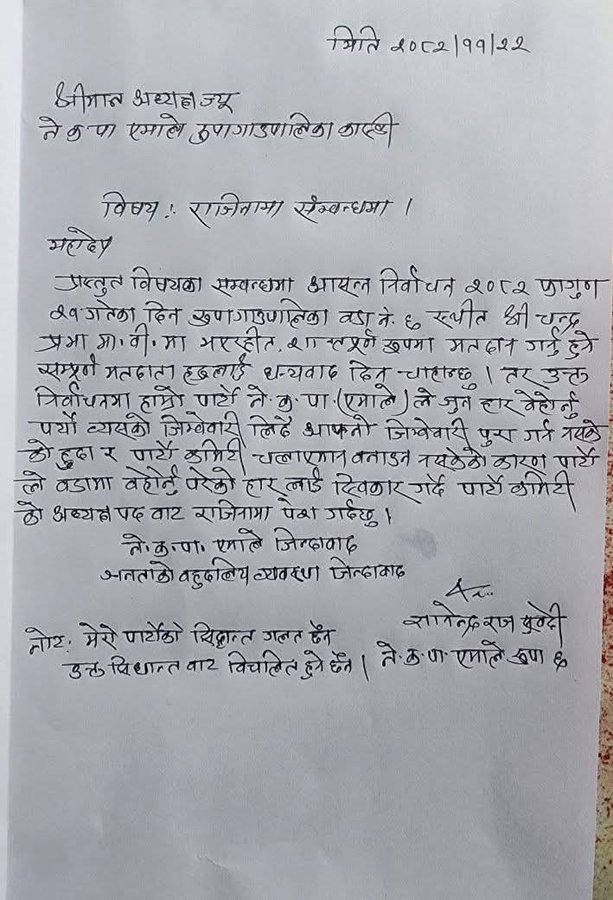 मिति २०८२/११/२२
श्रीमान अध्यक्ष ज्यू
ने क पा एमाले रुपागाउपालिका कास्की
विषय : राजिनामा संम्वन्धमा ।
महादेय
प्रस्तुत विषयका सम्वन्धमा आसन्न निर्वाचन २०८२ फागुन
२१ गतेका दिन रुपागाउपालिका वडा नं. ६ स्थीत श्री चन्द्र
प्रभा मा. वी. मा भयरहीत, शान्तपूर्ण रुपमा मतदान गर्नु हुने
सम्पूर्ण मतदाता हरुलाई धन्यवाद दिन चाहान्छु । तर उक्त
निर्वाचनमा हाम्रो पार्टी ने. क. पा. (एमाले) ले जुन हार वेहोर्नु
पर्यो त्यसको जिम्वेवारी लिदै आफ्नो जिम्वेवारी पुरा गर्न नसके
को हुदा र पार्टी कमिटी चलाएमान वनाउन नसकेको कारण पार्टी
ले वडामा वेहोर्नु परेको हार लाई स्विकार गर्दै पार्टी कमिटी
को अध्यक्ष पद वाट राजिनामा पेश गर्दछु ।
ने. क. पा. एमाले जिन्दावाद
जनताको वहुदलिय व्यवस्था जिन्दावाद
ज्ञानेन्द्र राज सुवेदी
ने. क. पा. एमाले रुपा ६
नोट: मेरो पार्टीको सिद्धान्त गलत छैन
उक्त सिधान्त वाट विचलित हुने छैन ।